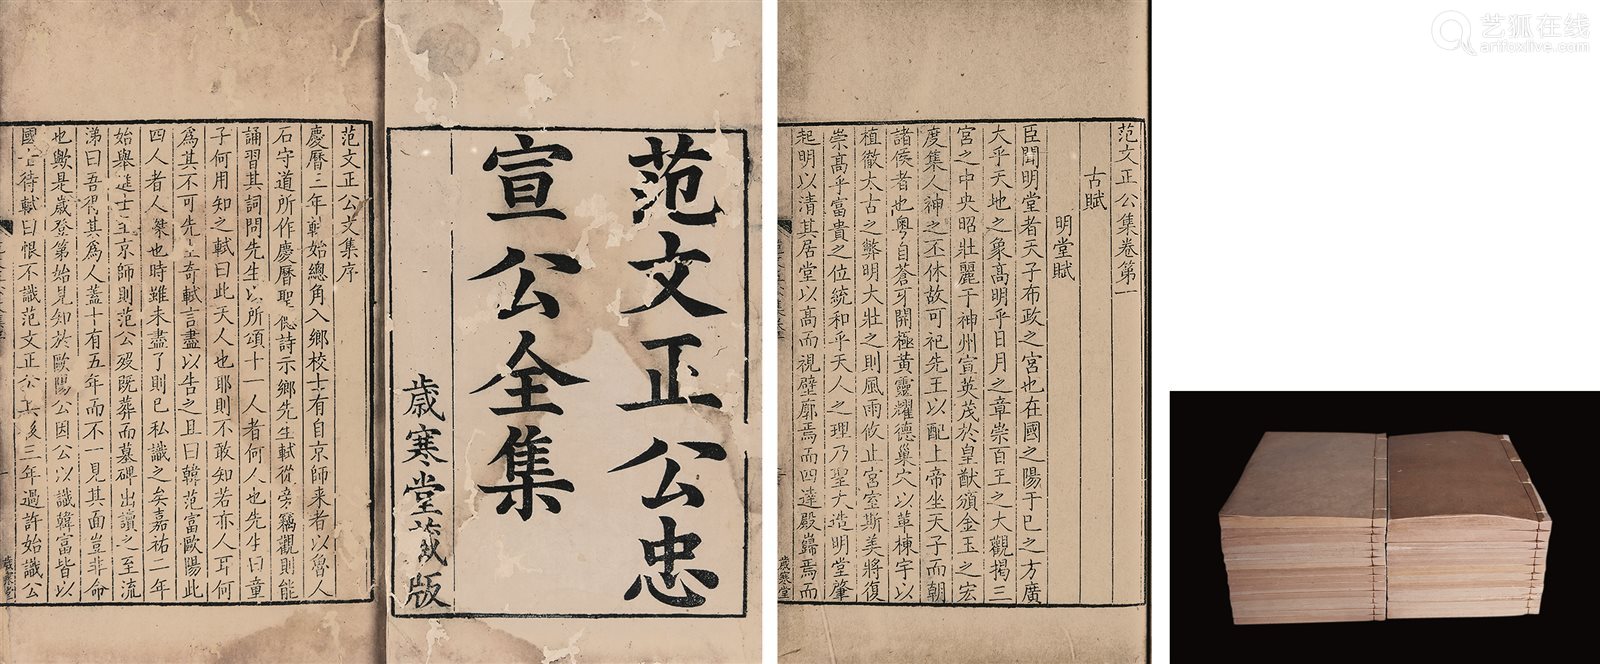 范文正公忠
宣公全集
歲寒堂藏版
范文正公文集序
慶曆三年軾始總角入鄉校士有自京師来者以魯人
石守道所作慶曆聖德詩示鄉先生軾從旁竊觀則能
誦習其詞問先生以所頌十一人者何人也先生曰童
子何用知之軾曰此天人也耶則不敢知若亦人耳何
為其不可先生奇軾言盡以告之且曰韓范富歐陽此
四人者人傑也時雖未盡了則已私識之矣嘉祐二年
始舉進士至京師則范公歿既葬而墓碑出讀之至流
涕曰吾得其為人蓋十有五年而不一見其面豈非命
也歟是歲登第始見知於歐陽公因公以識韓富皆以
國士待軾曰恨不識范文正公其後三年過許始識公
歲寒堂
范文正公集卷第一
古賦
明堂賦
臣聞明堂者天子布政之宮也在國之陽于巳之方廣
大乎天地之象高明乎日月之章崇百王之大觀揭三
宮之中央昭壯麗于神州宣英茂於皇猷頒金玉之宏
度集人神之丕休故可祀先王以配上帝坐天子而朝
諸侯者也粵自蒼牙開極黃靈耀德巢穴以革棟宇以
植徹太古之弊明大壯之則風雨攸止宮室斯美將復
崇高乎富貴之位統和乎天人之理乃聖大造明堂肇
起明以清其居堂以高而視壁廓焉而四達殿巋焉而
歲寒堂
艺狐在线
artfoxlive.com